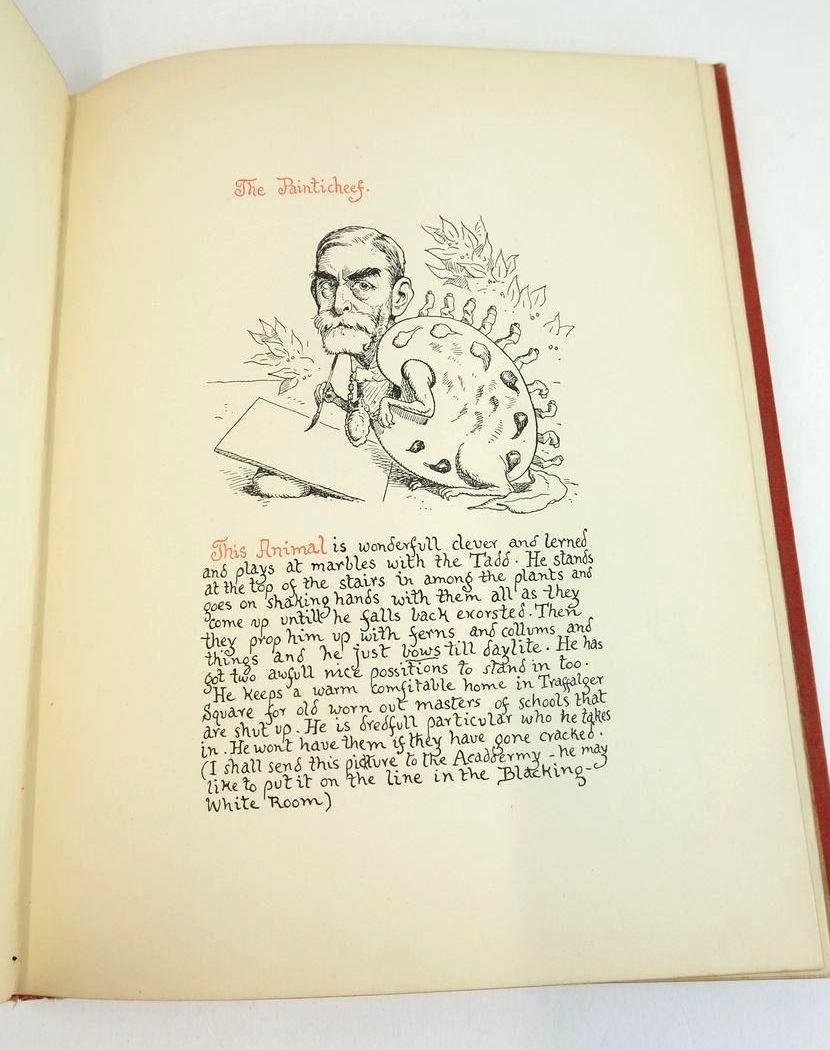 The Painticheef.
This Animal is wonderfull clever and lerned
and plays at marbles with the Tadd. He stands
at the top of the stairs in among the plants and
goes on shaking hands with them all as they
come up untill he falls back exorsted. Then
they prop him up with ferns and collums and
things and he just bows till daylite. He has
got two awfull nice possitions to stand in too.
He keeps a warm comfitable home in Traffalger
Square for old worn out masters of schools that
are shut up. He is dredfull particular who he takes
in. He won't have them if they have gone cracked.
(I shall send this picture to the Acaddermy - he may
like to put it on the line in the Blacking-
White Room)